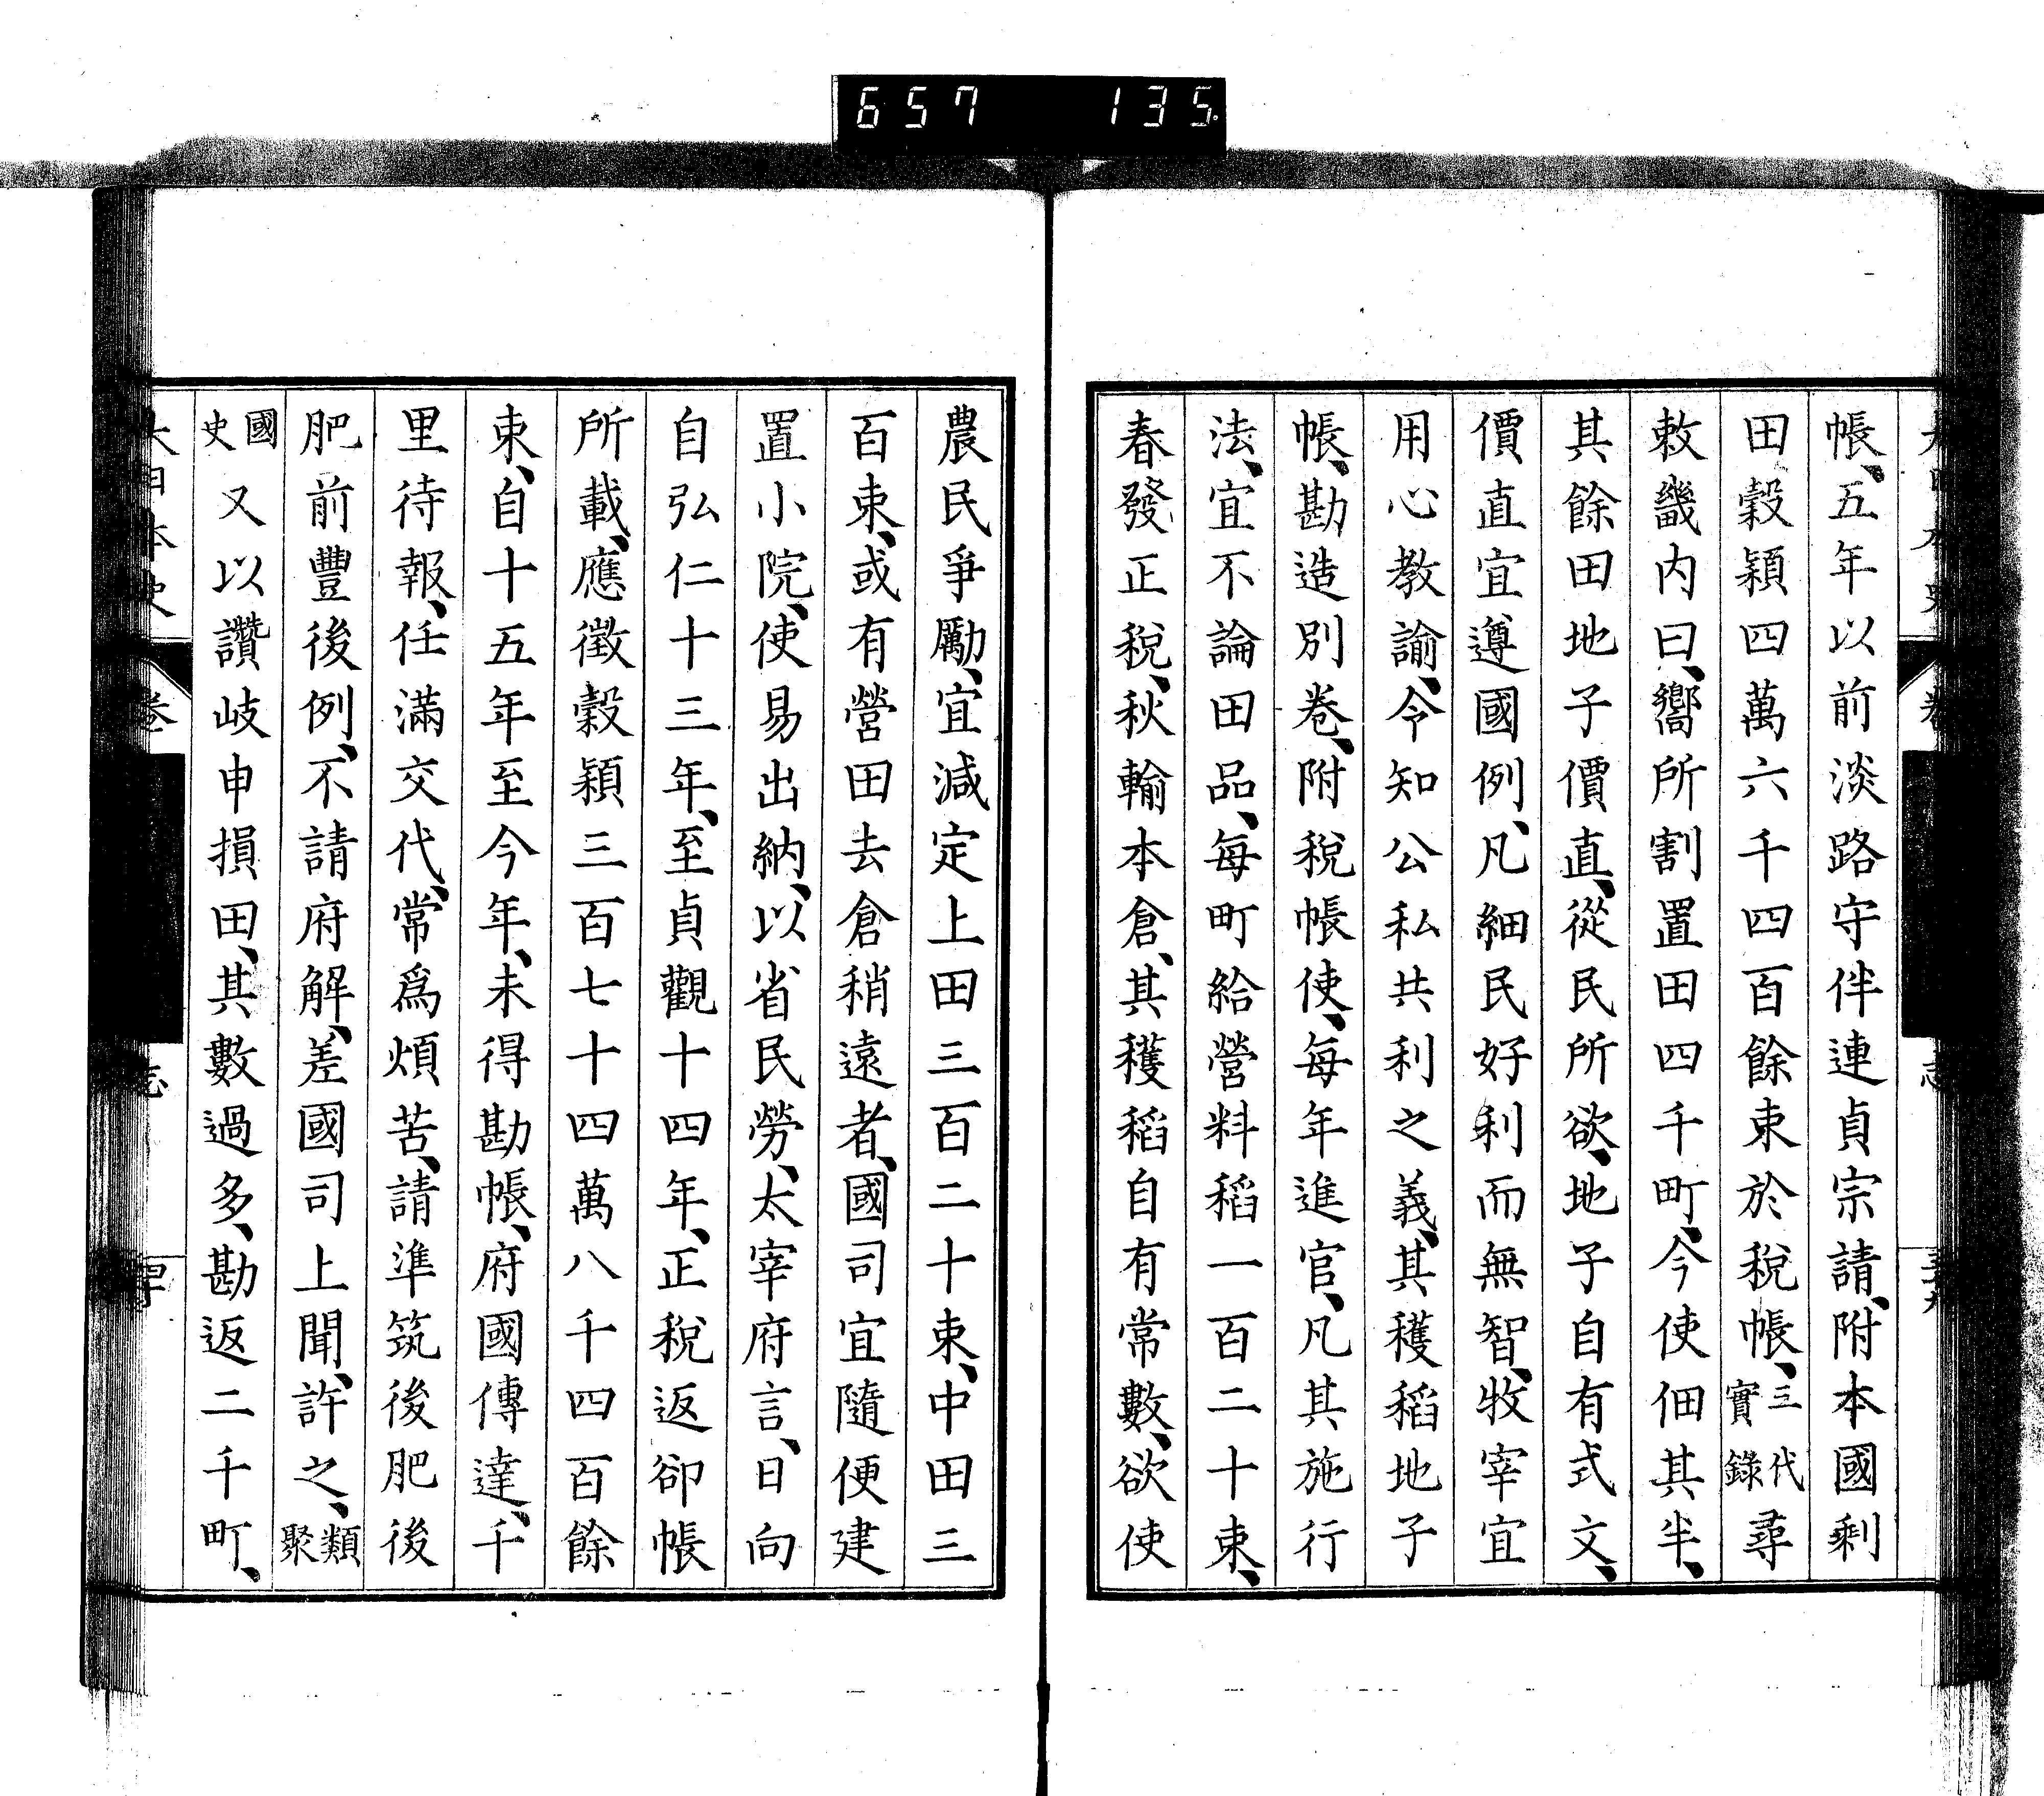 657 135
帳、五年以前淡路守伴連貞宗請、附本國剩
田穀穎四萬六千四百餘束於税帳、三代實錄尋
敕畿内曰、嚮所割置田四千町、今使佃其半、
其餘田地子價直、從民所欲、地子自有式文、
價直宜遵國例、凡細民好利而無智、牧宰宜
用心教諭、令知公私共利之義、其穫稻地子
帳、勘造別卷、附税帳使、毎年進官、凡其施行
法、宜不論田品、毎町給營料稻一百二十束、
春發正税、秋輸本倉、其穫稻自有常數、欲使
農民爭勵、宜減定上田三百二十束、中田三
百束、或有營田去倉稍遠者、國司宜隨便建
置小院、使易出納、以省民勞、太宰府言、日向
自弘仁十三年、至貞觀十四年、正税返卻帳
所載、應徴穀穎三百七十四萬八千四百餘
束、自十五年至今年、未得勘帳、府國傳達、千
里待報、任滿交代、常爲煩苦、請準筑後肥後
肥前豐後例、不請府解、差國司上聞、許之、類聚
國史又以讚岐申損田、其數過多、勘返二千町、
大日本史 卷 志